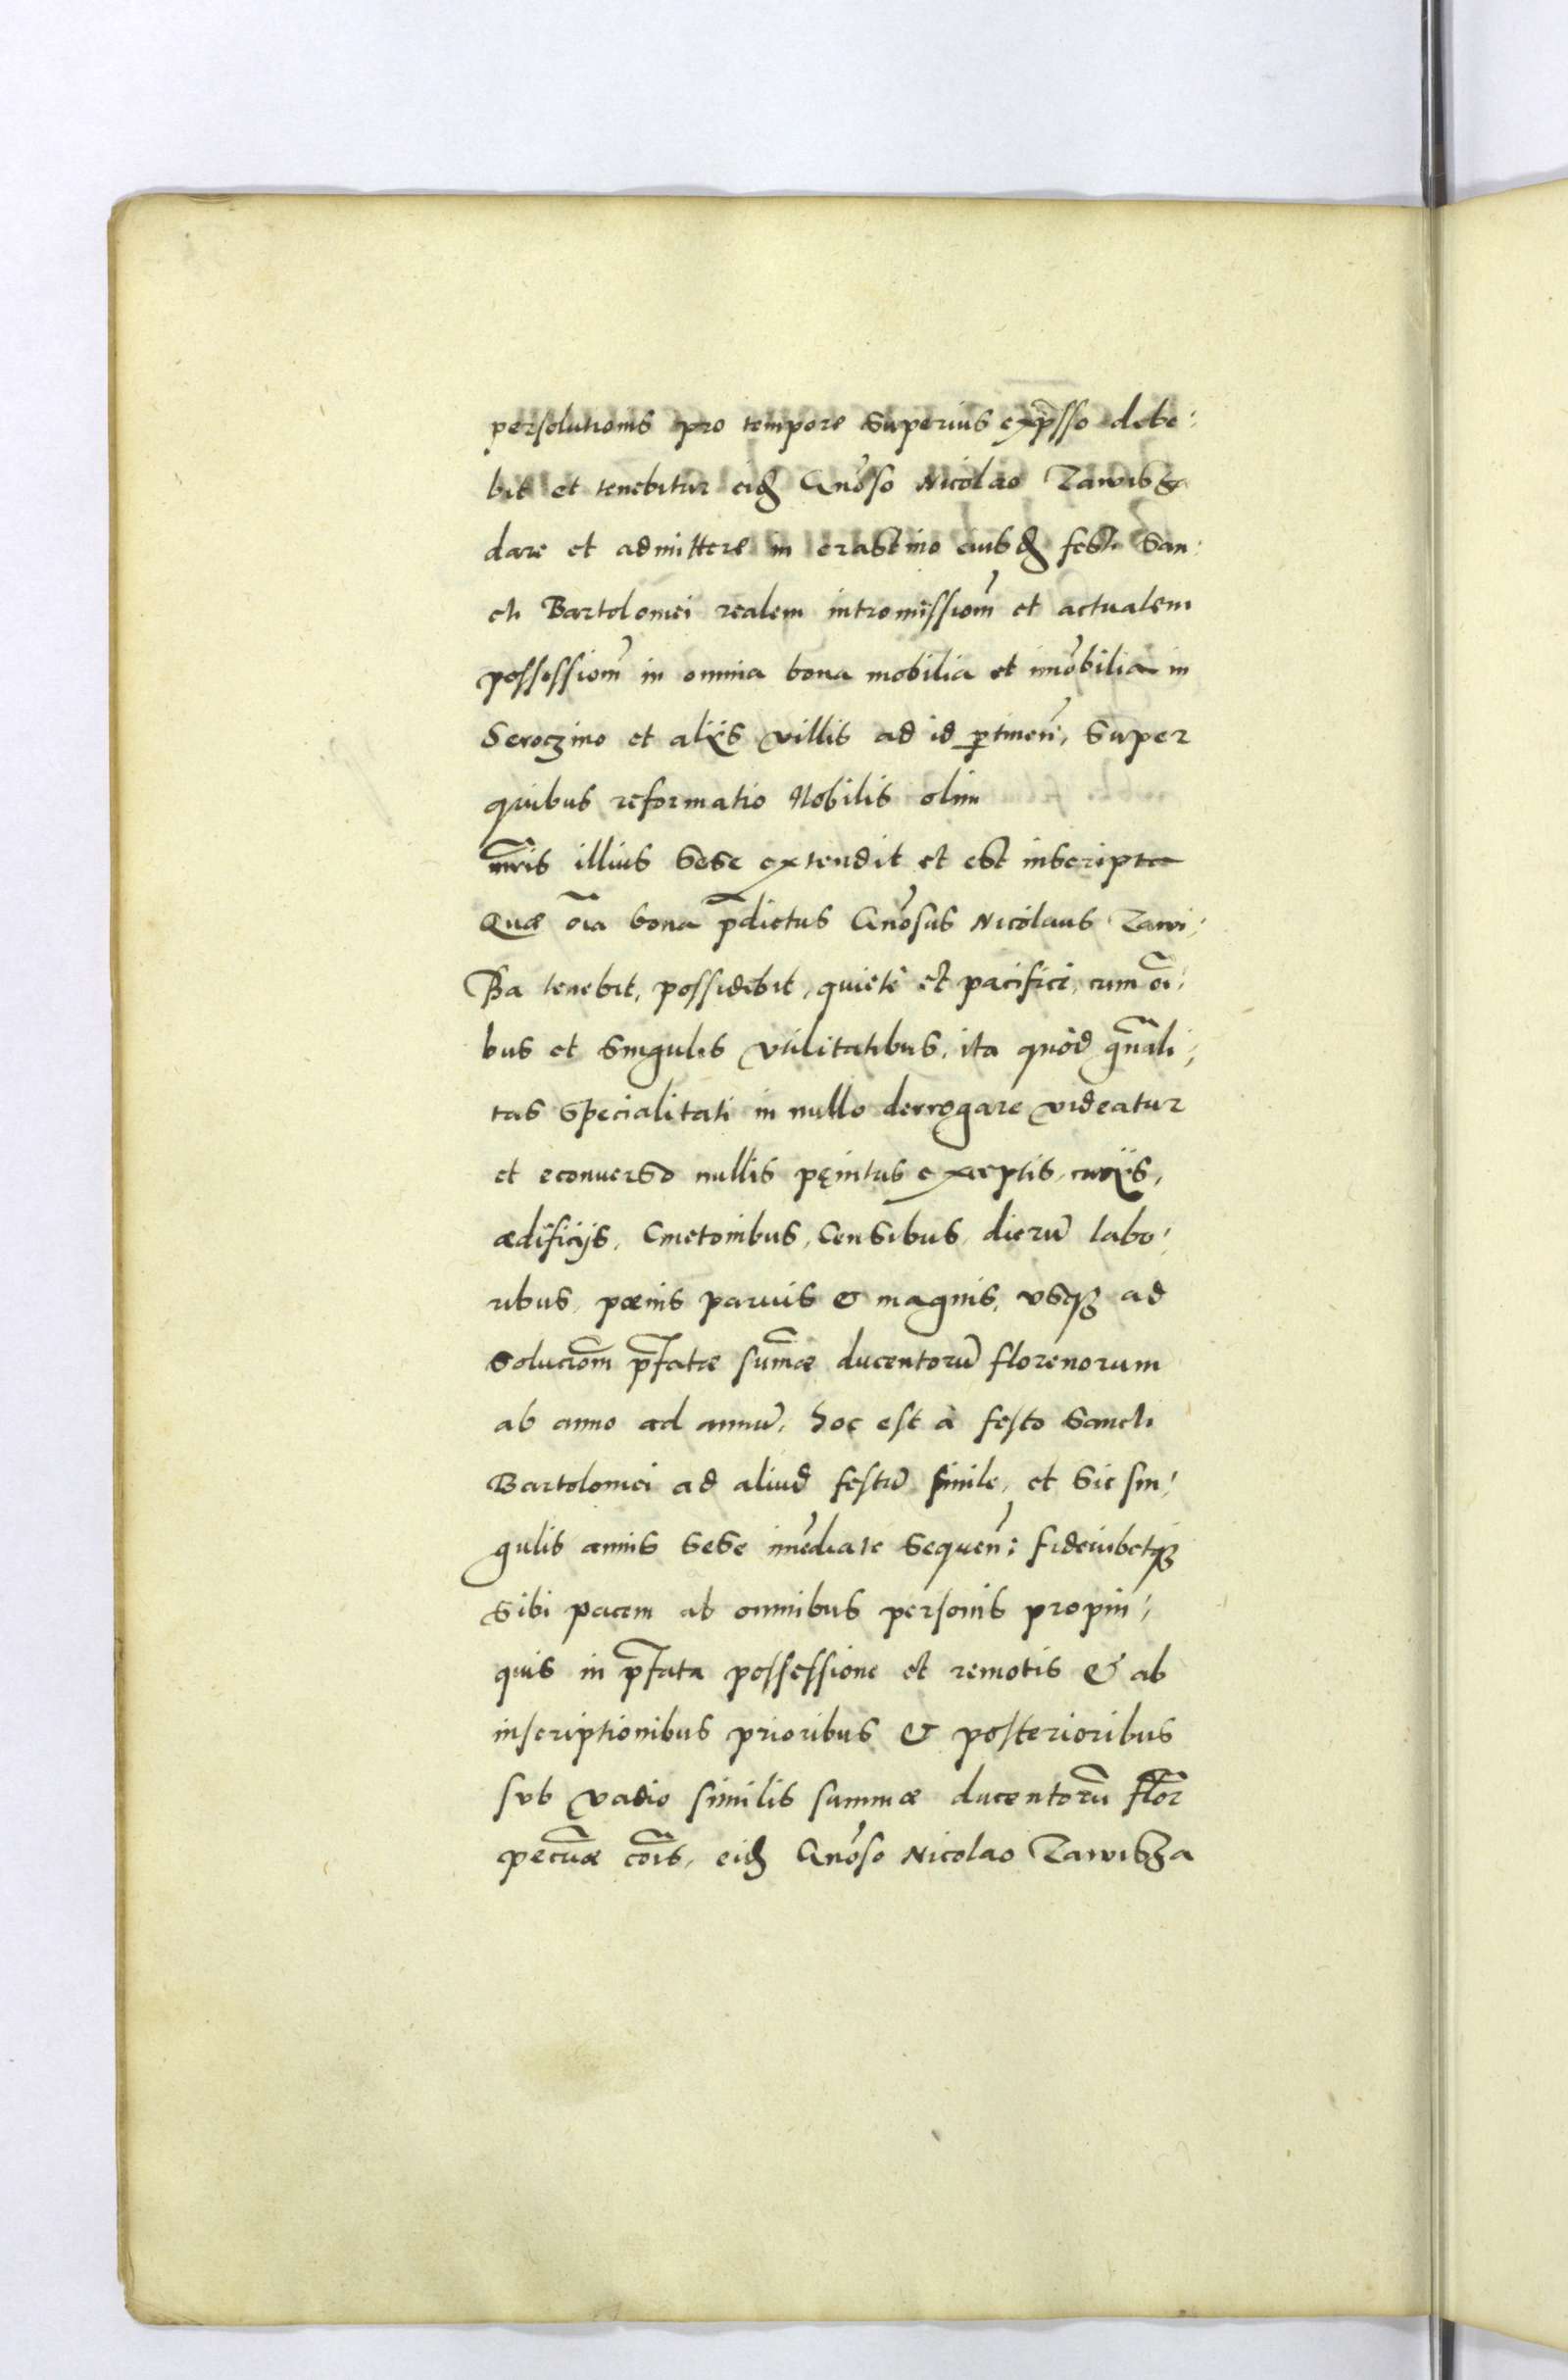 persolutionis pro tempore superius exp̄sso debe:
bit et tenebitur eid Gn̄oso Nicolao Zawisz
dare et admittere in crastino eiusd festi San:
cti Bartolomei realem intromissiom̄ et actualem
possessiom̄ in omnia bona mobilia et im̄obilia in
Seroczino et alijs villis ad id ꝑtinen̄, super
quibus reformatio Nobilis olim
mr̄is illius sese extendit et est inscripta
Quæ oīa bona p̄dictus Gn̄osus Nicolaus Zawi:
ßa tenebit, possidebit, quietè et pacificè, cum oī:
bus et singulis vtilitatibus, ita quòd gn̄ali:
tas specialitati in nullo derrogare videatur
et econuerso nullis pęnitus exceptis, curijs,
ædificijs, Cmetonibus, Censibus, dierū labo:
ribus, pœnis paruis & magnis, vsqꝫ ad
soluciom̄ p̄fatæ sum̄æ ducentorū florenorum
ab anno ad annū, hoc est à festo Sancti
Bartolomei ad aliud festū simile, et sic sin:
gulis annis sese im̄ediatè sequen̄: fideiubetqꝫ
sibi pacem ab omnibus personis propin:
quis in p̄fata possessione et remotis & ab
inscriptionibus prioribus & posterioribus
sub vadio similis summæ ducentorū flor̄
pecūæ cōis, eid Gn̄oso Nicolao Zawisza